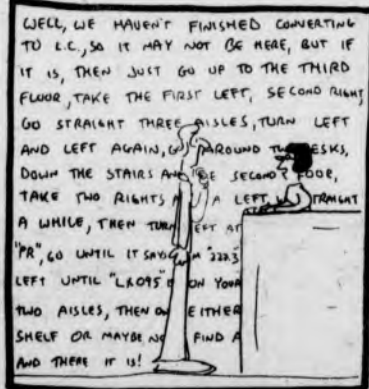 WELL, WE HAVEN'T FINISHED CONVERTING
TO L.C., SO IT MAY NOT BE HERE, BUT IF
IT IS, THEN JUST GO UP TO THE THIRD
FLOOR, TAKE THE FIRST LEFT, SECOND RIGHT,
GO STRAIGHT THREE AISLES, TURN LEFT
AND LEFT AGAIN, AROUND DESKS,
DOWN THE STAIRS SECOND FLOOR,
TAKE TWO RIGHTS A LEFT,
A WHILE, THEN TURN LEFT AT
"PR", GO UNTIL IT SAYS "222.3"
LEFT UNTIL ON YOUR
TWO AISLES, THEN ON EITHER
SHELF OR MAYBE FIND A
AND THERE IT IS!